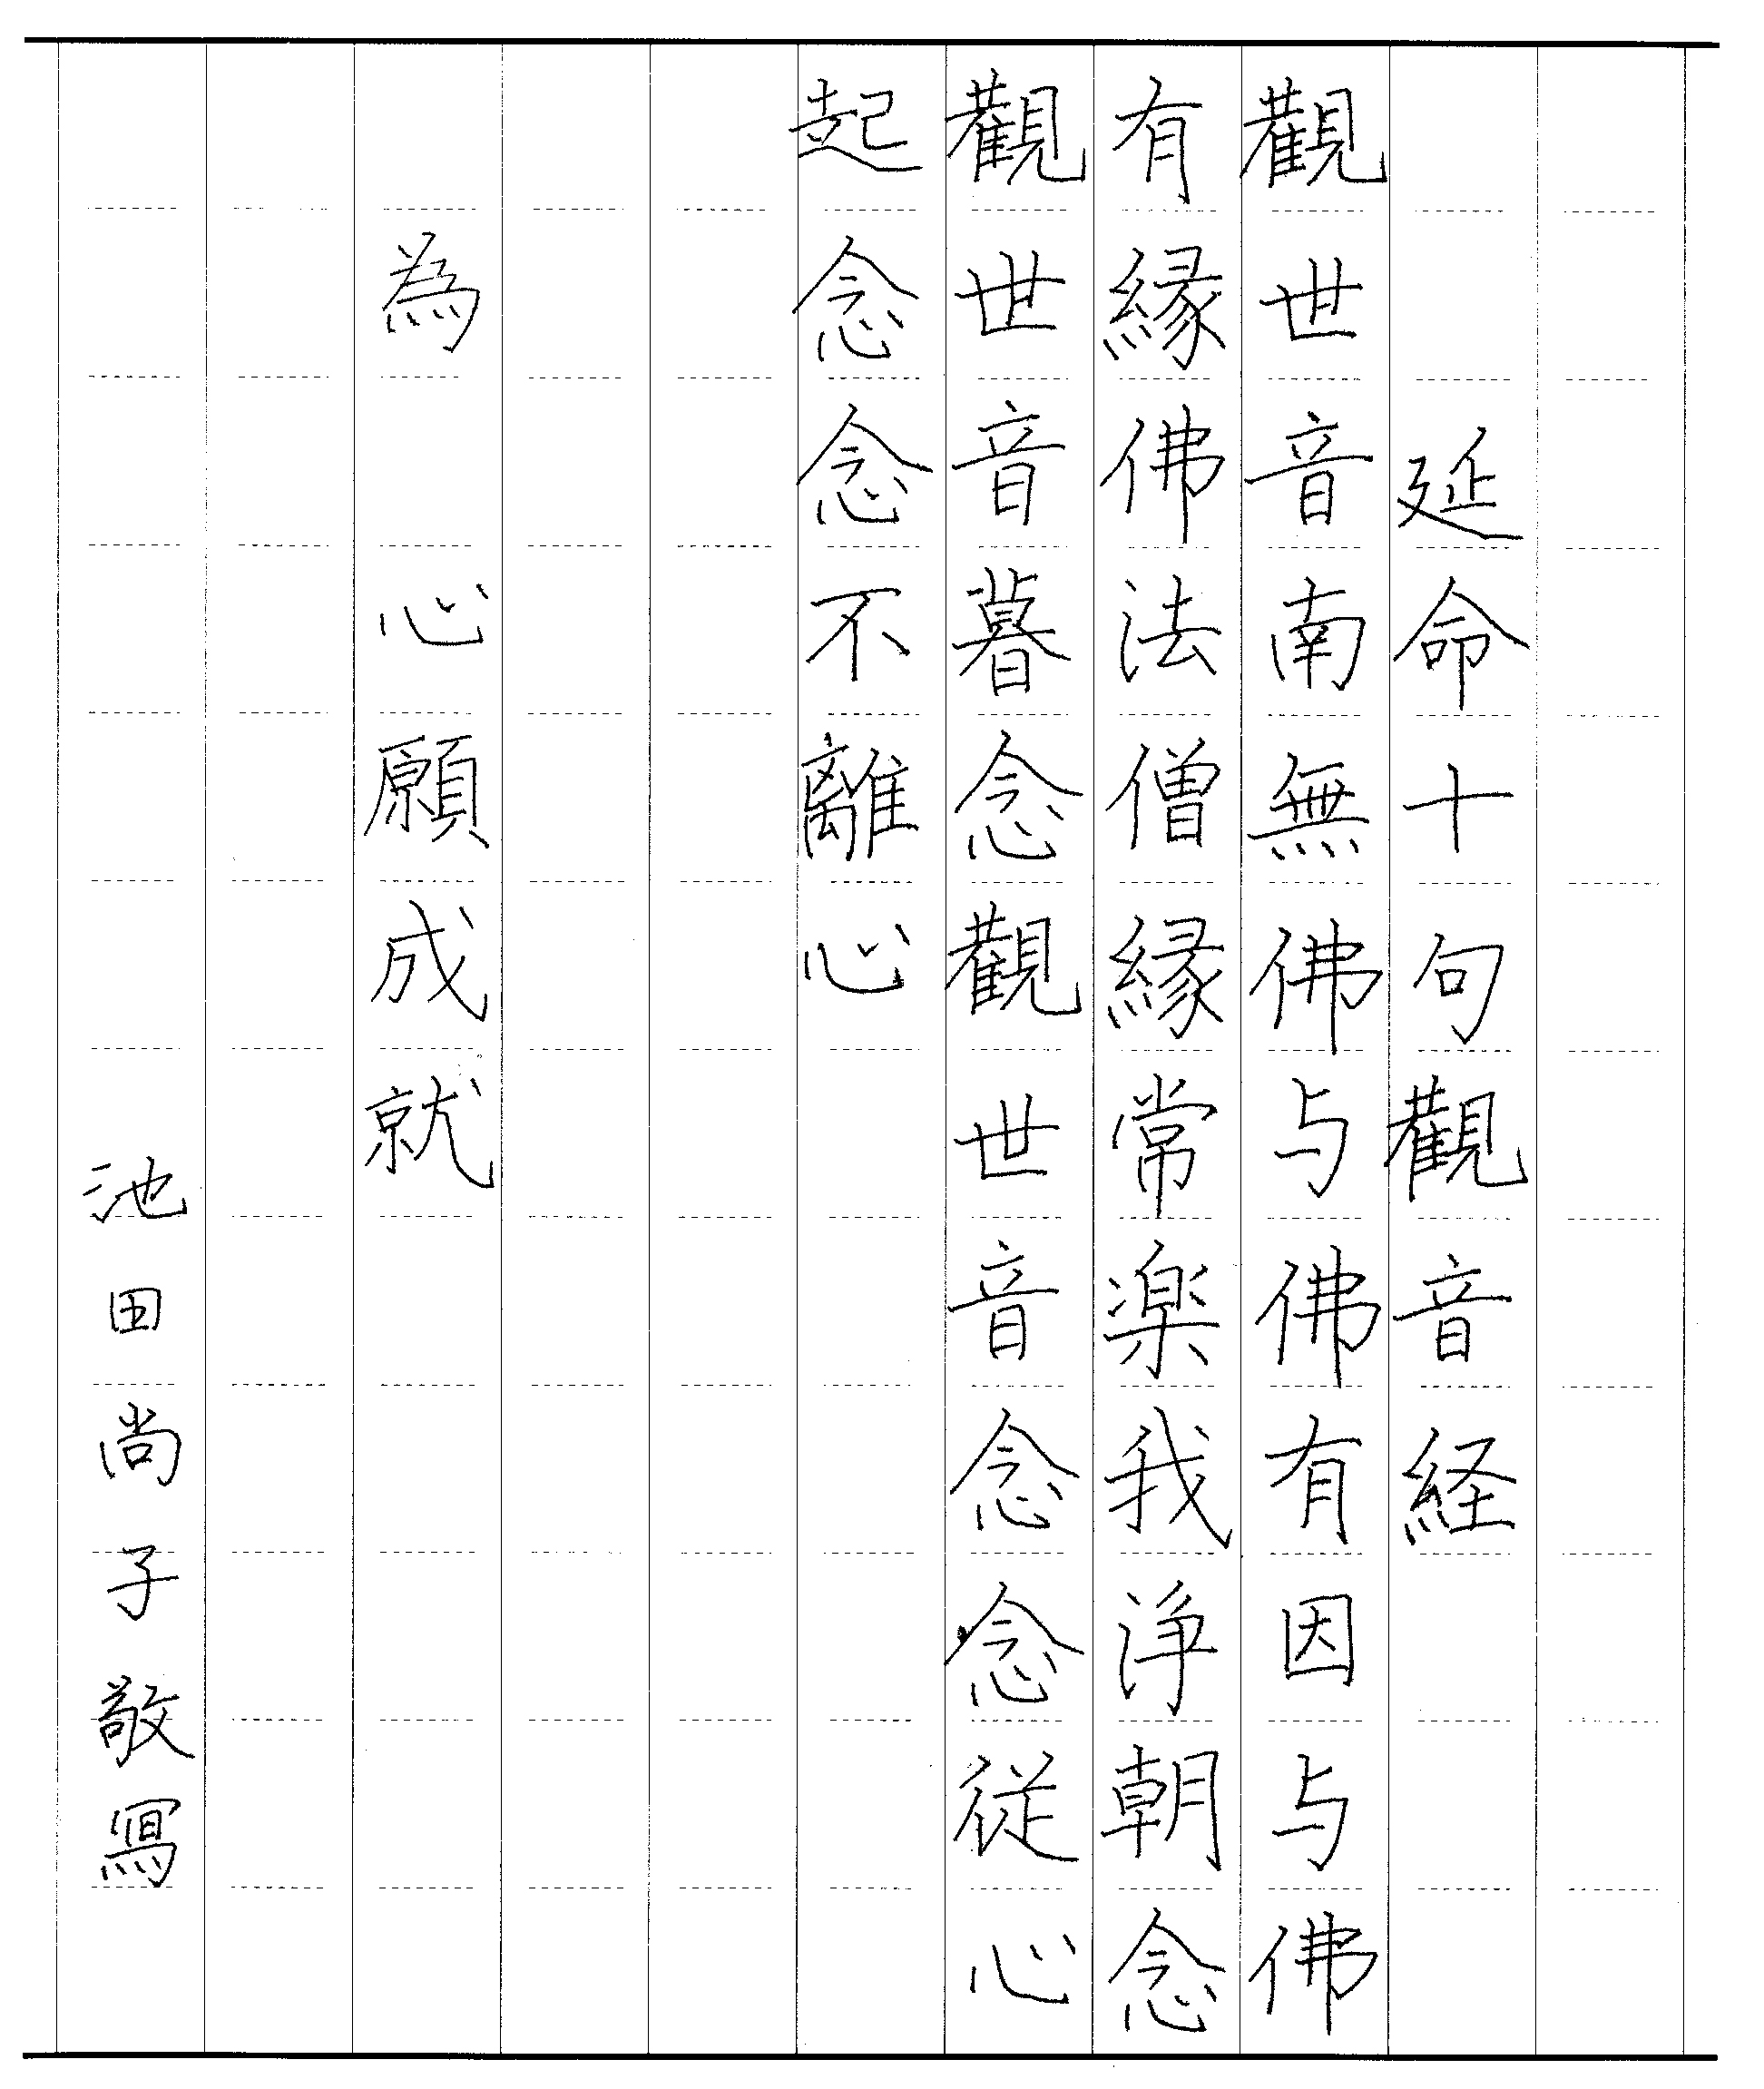 延命十句觀音経
觀世音南無佛与佛有因与佛
有縁佛法僧縁常楽我浄朝念
觀世音暮念觀世音念念従心
起念念不離心
為 心願成就
池田尚子敬寫